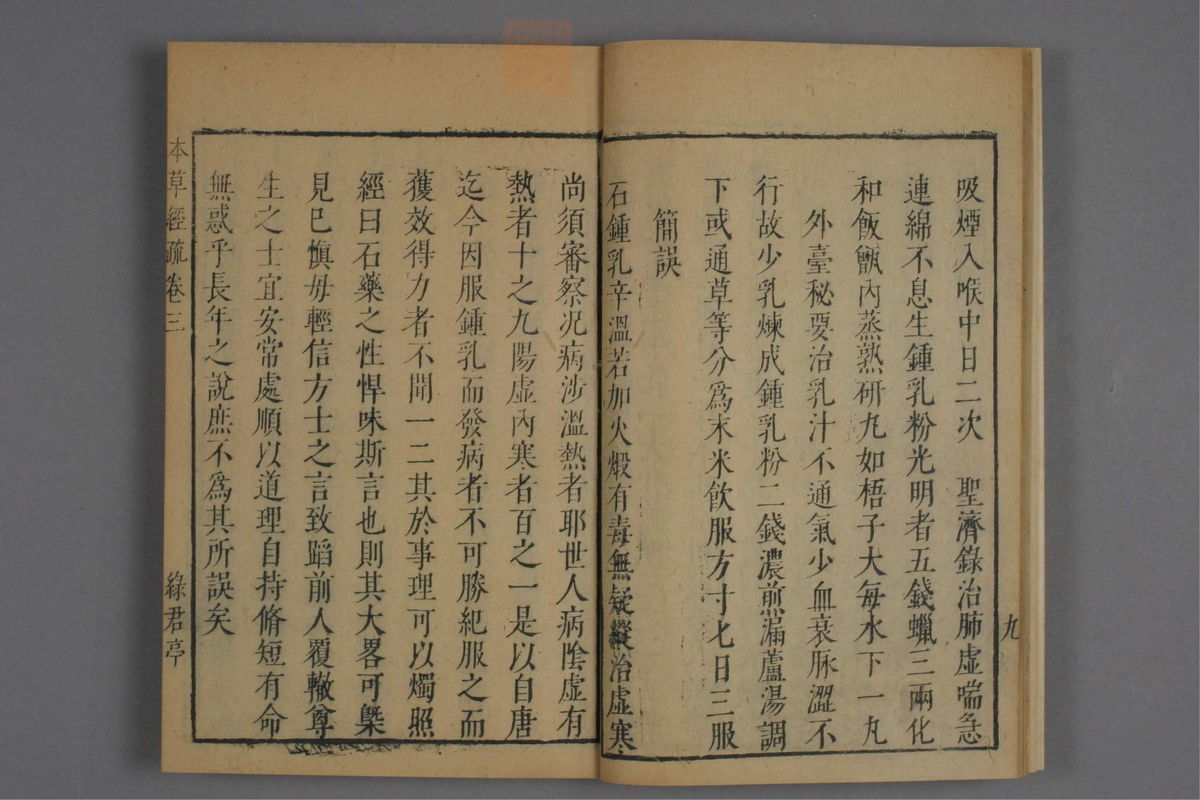 吸煙入喉中日二次　聖濟錄治肺虛喘急
連綿不息生鍾乳粉光明者五錢蠟三兩化
和飯甑內蒸熟研丸如梧子大每水下一丸
外臺秘要治乳汁不通氣少血衰脉澀不
行故少乳煉成鍾乳粉二錢濃煎漏蘆湯調
下或通草等分爲末米飲服方寸匕日三服
簡誤
石鍾乳辛溫若加火煅有毒無疑縱治虛寒
九
尚須審察况病涉溫熱者耶世人病陰虛有
熱者十之九陽虛內寒者百之一是以自唐
迄今因服鍾乳而發病者不可勝紀服之而
獲效得力者不聞一二其於事理可以燭照
經曰石藥之性悍味斯言也則其大畧可槩
見已慎毋輕信方士之言致蹈前人覆轍尊
生之士宜安常處順以道理自持脩短有命
無惑乎長年之說庶不爲其所誤矣
本草經疏卷三
綠君亭